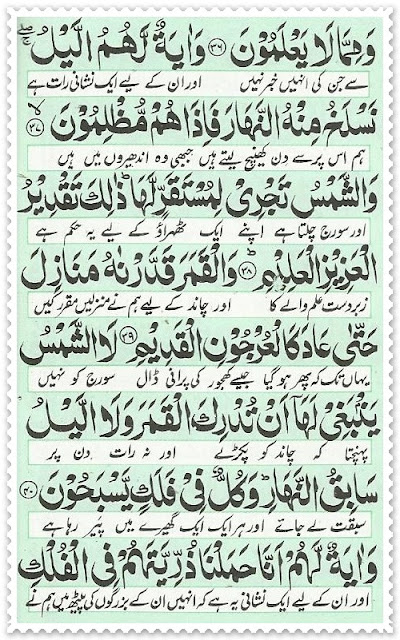 وَمِمَّا لَا يَعْلَمُوْنَ ۝۳۶ وَاٰيَةٌ لَّهُمُ الَّيْلُ
سے جن کی انہیں خبر نہیں اور ان کے لیے ایک نشانی رات ہے
نَسْلَخُ مِنْهُ النَّهَارَ فَاِذَا هُمْ مُّظْلِمُوْنَ ۝۳۷
ہم اس پر سے دن کھینچ لیتے ہیں جبھی وہ اندھیروں میں ہیں
وَالشَّمْسُ تَجْرِيْ لِمُسْتَقَرٍّ لَّهَا ذٰلِكَ تَقْدِيْرُ
اور سورج چلتا ہے اپنے ایک ٹھہراؤ کے لیے یہ حکم ہے
الْعَزِيْزِ الْعَلِيْمِ ۝۳۸ وَالْقَمَرَ قَدَّرْنٰهُ مَنَازِلَ
زبردست علم والے کا اور چاند کے لیے ہم نے منزلیں مقرر کیں
حَتّٰى عَادَ كَالْعُرْجُوْنِ الْقَدِيْمِ ۝۳۹ لَا الشَّمْسُ
یہاں تک کہ پھر ہو گیا جیسے کھجور کی پرانی ڈال سورج کو نہیں
يَنْۢبَغِيْ لَهَا اَنْ تُدْرِكَ الْقَمَرَ وَلَا الَّيْلُ
پہنچتا کہ چاند کو پکڑلے اور نہ رات دن پر
سَابِقُ النَّهَارِ وَكُلٌّ فِيْ فَلَكٍ يَّسْبَحُوْنَ ۝۴۰
سبقت لے جائے اور ہر ایک ایک گھیرے میں پیر رہا ہے
وَاٰيَةٌ لَّهُمْ اَنَّا حَمَلْنَا ذُرِّيَّتَهُمْ فِي الْفُلْكِ
اور ان کے لیے ایک نشانی یہ ہے کہ انہیں ان کے بزرگوں کی پیٹھ میں ہم نے